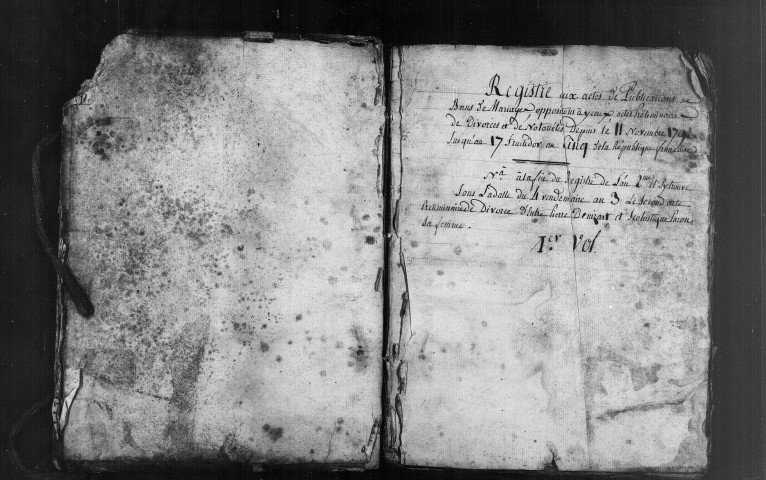 Registre aux actes de Publications de
Bans de Mariage, oppositions à yceux, actes préliminaires
de Divorces et de Notoriété, depuis le 11 Novembre 1792
Jusqu'au 17 fructidor an Cinq de la République française
Na. à la fin du Registre de l'an 2me il sy trouve
sous la datte du 4 vendemiaire an 3. Le second acte
preliminaire de Divorce d'entre Pierre Demizart et Scolastique
sa femme.
1er Vol